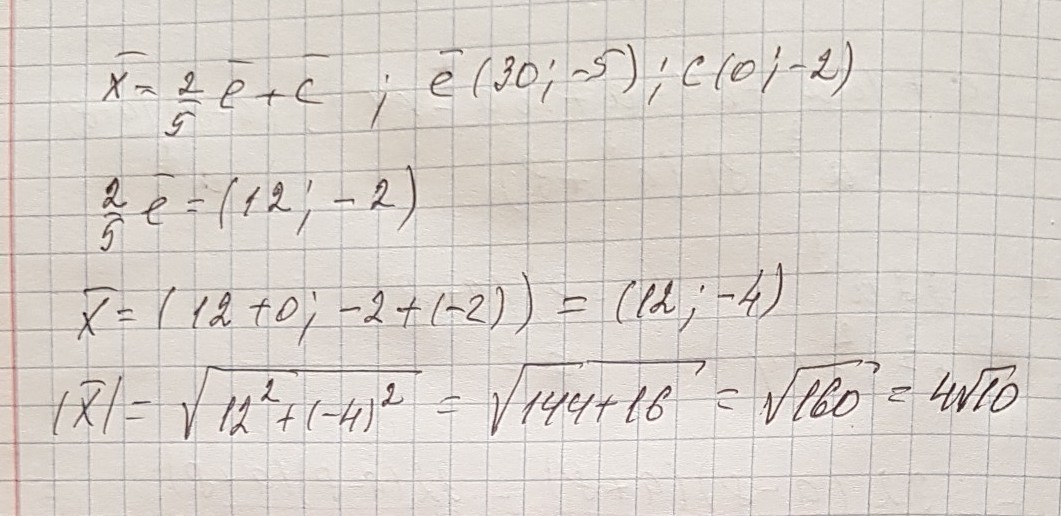 x̄ = 2/5 ē + c̄ ; ē (30; -5); c (0; -2)
2/5 ē = (12; -2)
x̄ = (12+0; -2+(-2)) = (12; -4)
|x̄| = √(12² + (-4)²) = √(144+16) = √160 = 4√10